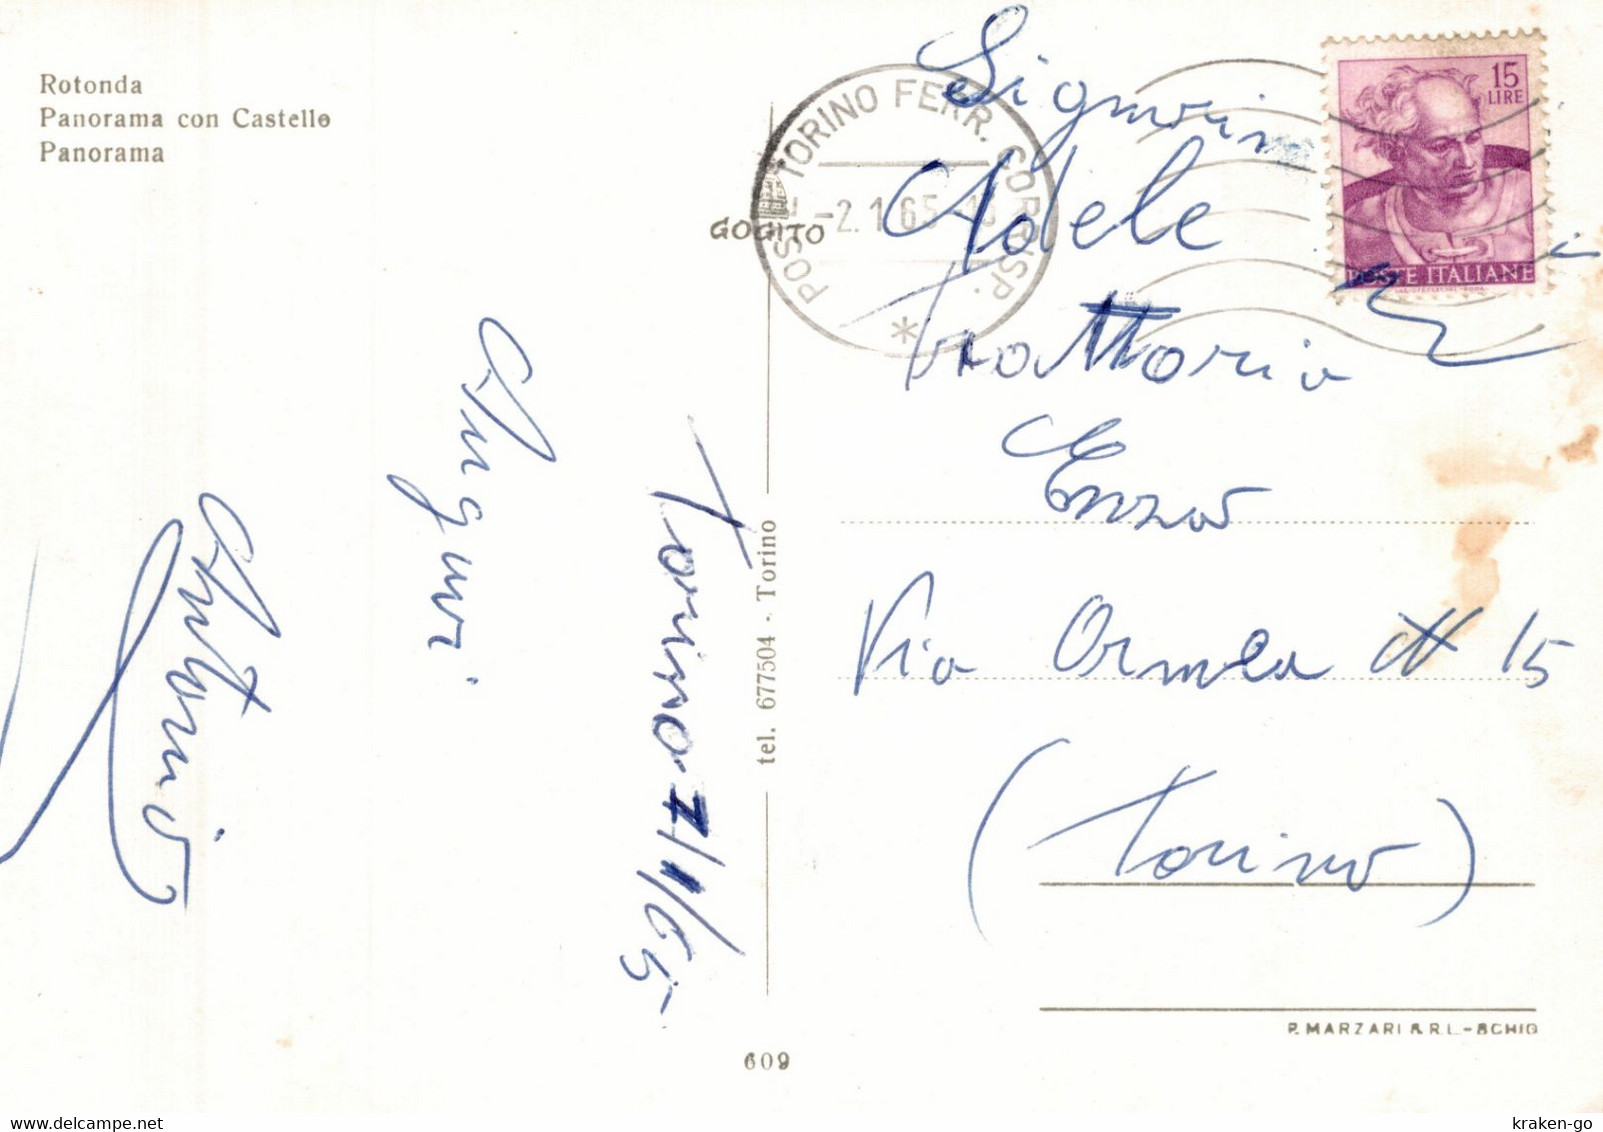 Rotonda
Panorama con Castello
Panorama
GOGITO
TORINO FERR. CORRISP.
-2.1.65
15
LIRE
POSTE ITALIANE
Signorin
Adele
Trattoria
Enzo
Via Ormea N 15
(Torino)
Torino 7/1/65
Auguri
Antonio
tel. 677504 - Torino
P. MARZARI S.R.L. - SCHIO
609
delcampe.net
kraken-go